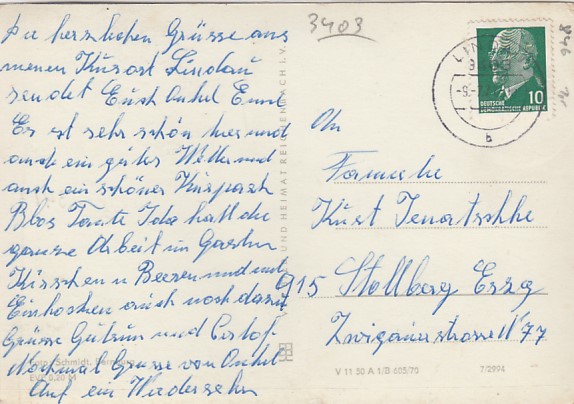 Die herzlichen Grüsse aus
meinen Kurort Lindau
sendet Euch Onkel Emil
Es ist sehr schön hier und
auch ein gutes Wetter und
auch ein schöner Kurpark
Blos Tante Ida hatt die
ganze Arbeit im Garten
Kirschen u Beeren und und
Einkochen auch noch dazu
Grüsse Gutrun und
Nochmal Grüsse von Onkel
Auf ein Wiedersehn
Foto: Schmidt,
EVP 0,20 M
UND HEIMAT REICHENBACH I. V.
3403
846
LIN
DEUTSCHE
DEMOKRATISCHE REPUBLIK
10
b
An
Familie
Kurt
915 Stollberg Erzg
Zwickauerstrasse N 77
V 11 50 A 1/B 605/70
7/2994